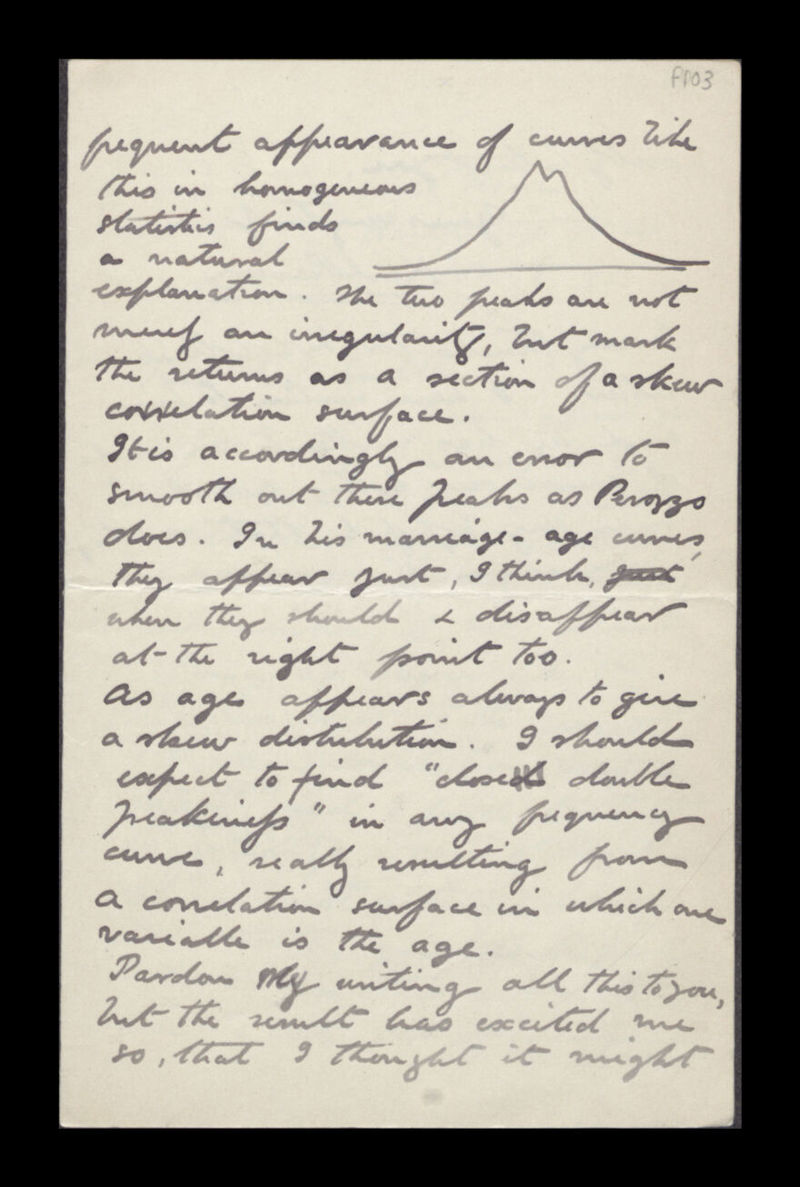 F103
frequent appearance of curves like
this in homogeneous
statistics finds
a natural
explanation. The two peaks are not
merely an irregularity, but mark
the returns as a section of a skew
correlation surface.
It is accordingly an error to
smooth out these peaks as Perozzo
does. In his marriage-age curves,
they appear just, I think, just
when they should & disappear
at the right point too.
As age appears always to give
a skew distribution. I should
expect to find "close double
peakiness" in any frequency
curve, really resulting from
a correlation surface in which one
variable is the age.
Pardon my writing all this to you,
but the result has excited me
so, that I thought it might